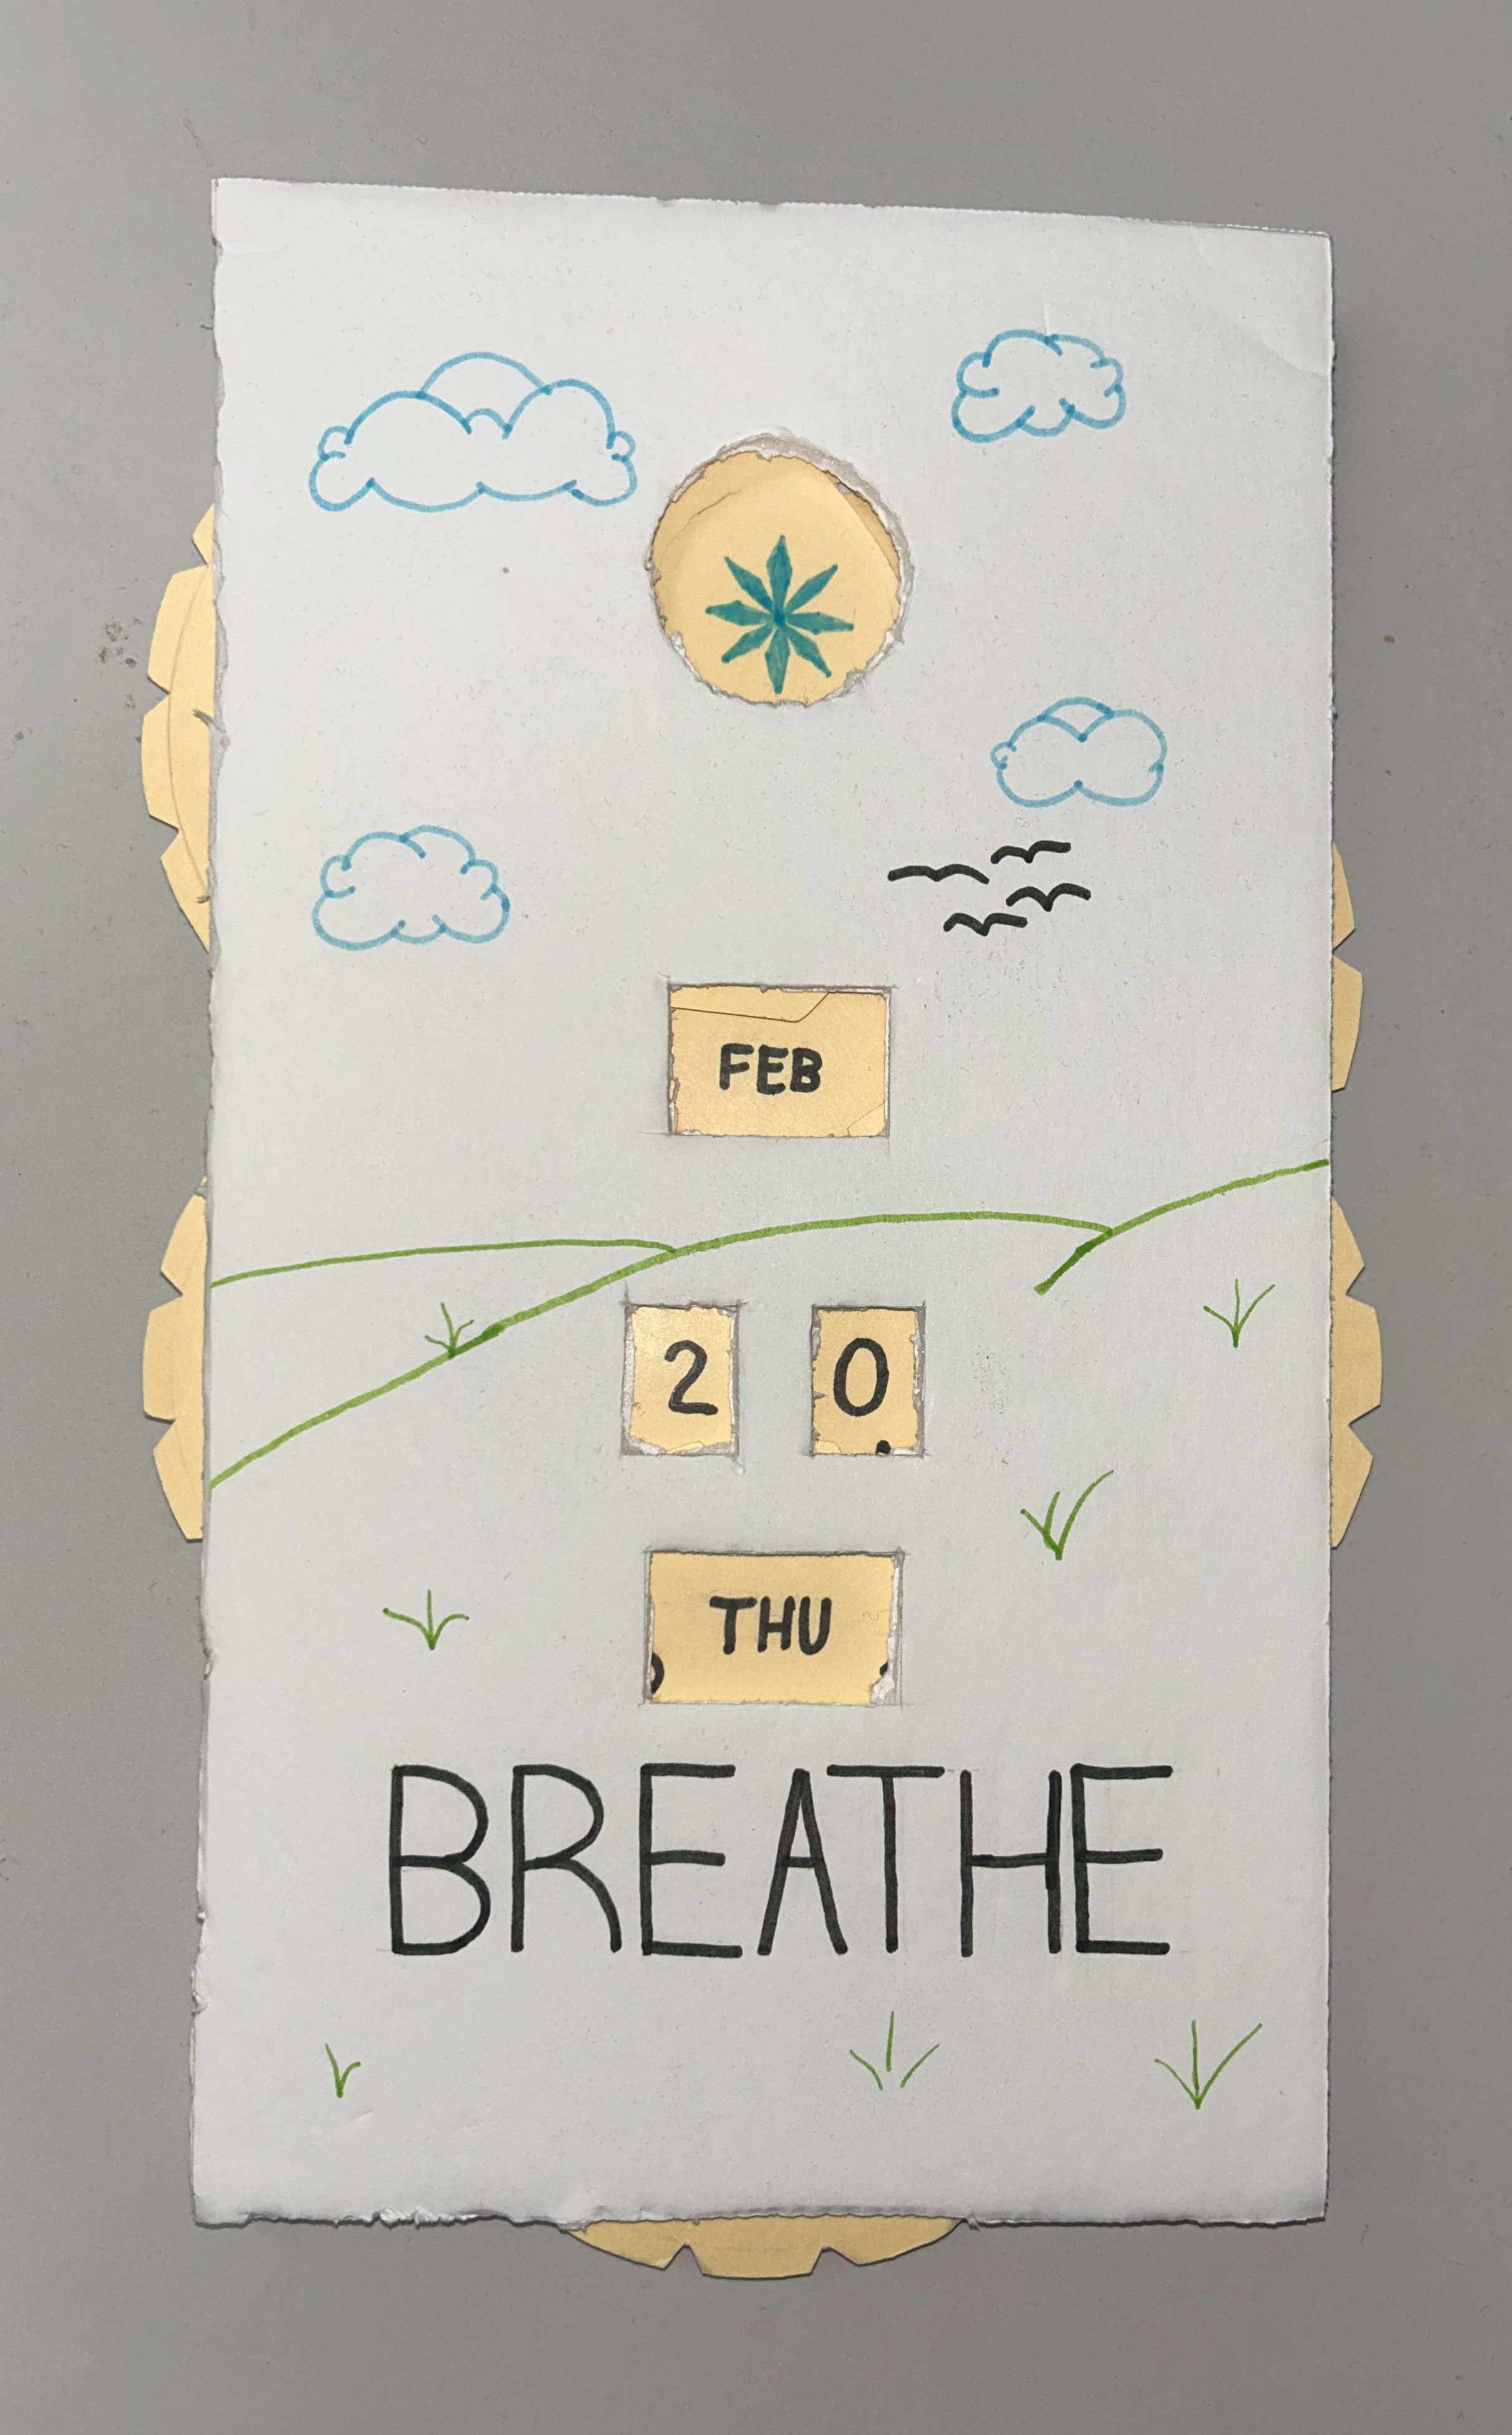 FEB
2 0
THU
BREATHE